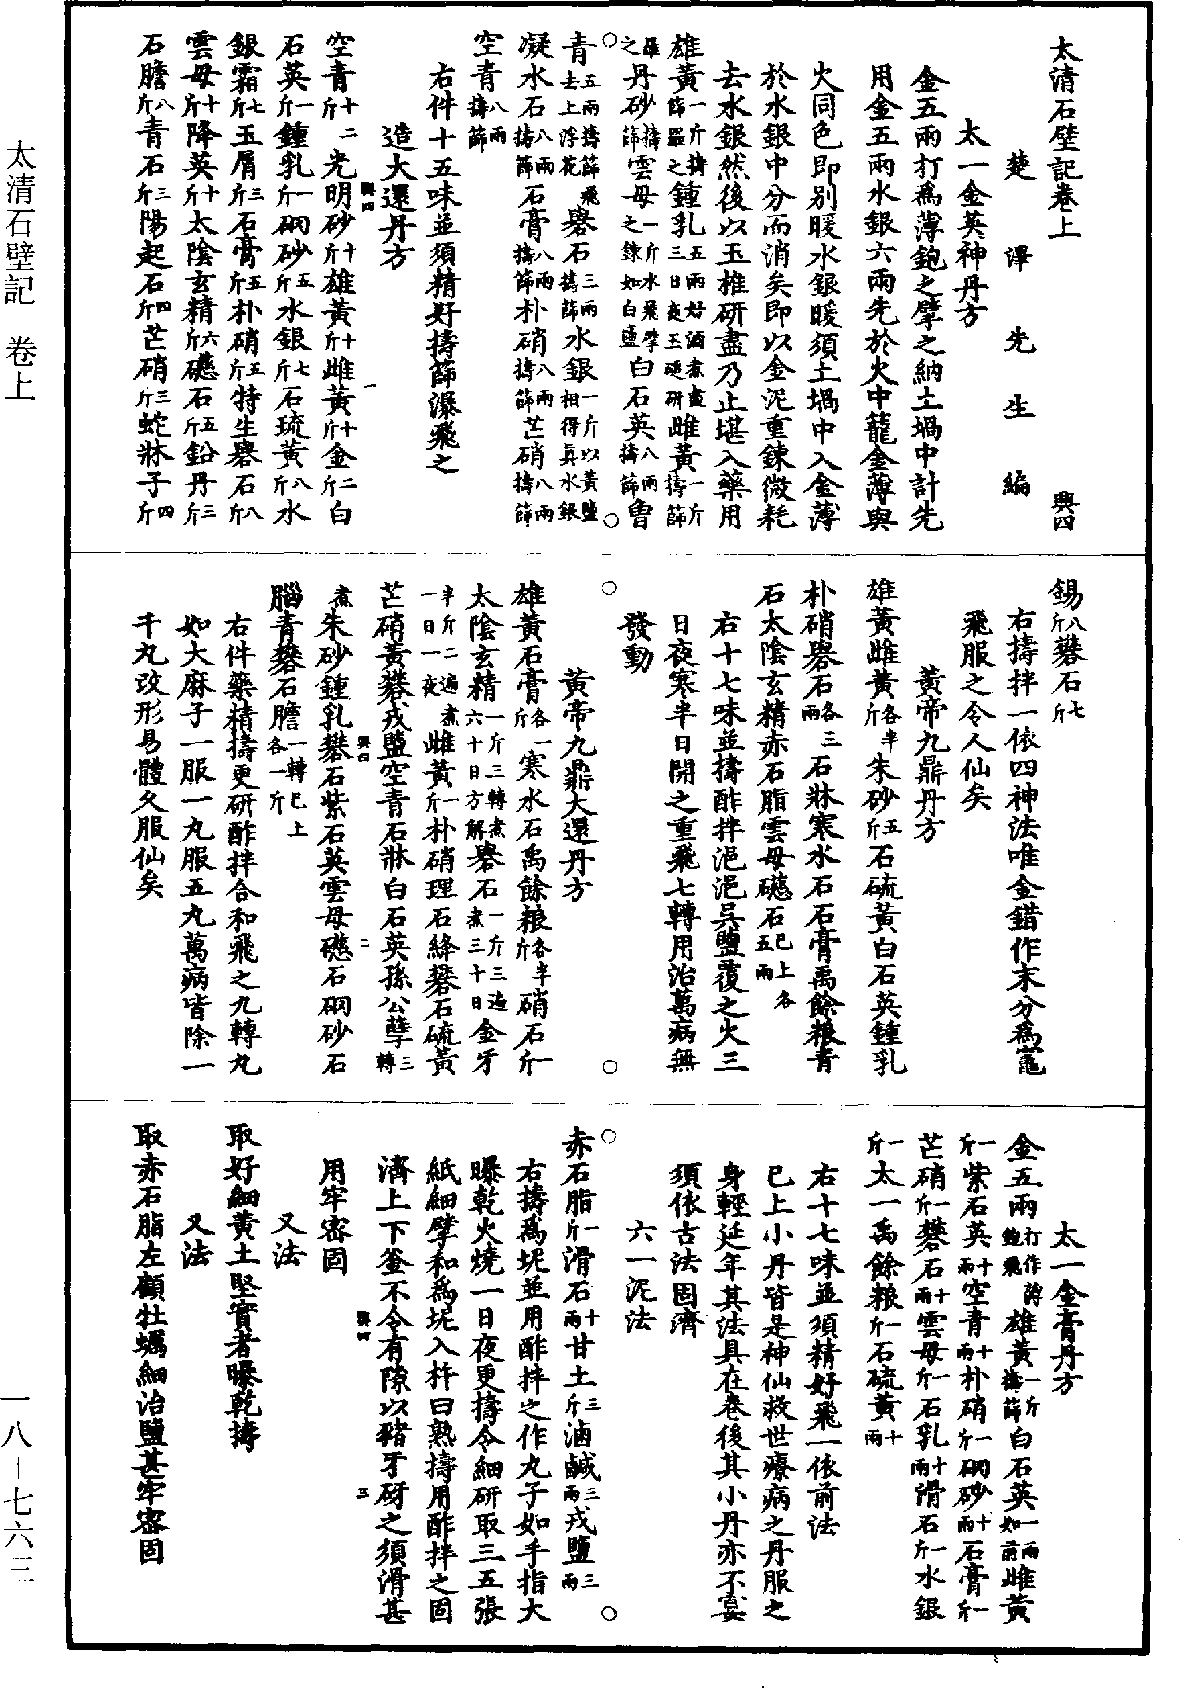 太清石壁記 卷上
太清石壁記卷上 興四
楚澤先生編
太一金英神丹方
金五兩打爲薄鉋之擘之納土堝中計先
用金五兩水銀六兩先於火中籠金薄與
火同色即別暖水銀暖須土堝中入金薄
於水銀中分而消矣即以金泥重鍊微耗
去水銀然後以玉椎研盡乃止堪入藥用
雄黃一斤擣篩羅之鍾乳五兩好酒煮盡三日夜玉硙研雌黃一斤擣篩
羅之丹砂擣篩雲母一斤水飛擘之鍊如白鹽白石英八兩擣篩曾
青五兩擣篩飛去上浮花礜石三兩擣篩水銀一斤以黃鹽相得真水銀
凝水石八兩擣篩石膏八兩擣篩朴硝八兩擣篩芒硝八兩擣篩
空青八兩擣篩
右件十五味並須精好擣篩瀑飛之
造大還丹方
興四 一
空青十二斤光明砂十斤雄黃十斤雌黃十斤金二斤白
石英一斤鍾乳一斤硇砂五斤水銀七斤石琉黃八斤水
銀霜七斤玉屑三斤石膏五斤朴硝五斤特生礜石八斤
雲母十斤降英十斤太陰玄精六斤礠石五斤鉛丹三斤
石膽八斤青石三斤陽起石四斤芒硝三斤蛇牀子四斤
錫八斤礬石七斤
右擣拌一依四神法唯金錯作末分爲竈
飛服之令人仙矣
黃帝九鼎丹方
雄黃雌黃各半斤朱砂五斤石硫黃白石英鍾乳
朴硝礜石各三兩石牀寒水石石膏禹餘粮青
石太陰玄精赤石脂雲母礠石已上各五兩
右十七味並擣酢拌浥浥吳鹽覆之火三
日夜寒半日開之重飛七轉用治萬病無
發動
黃帝九鼎大還丹方
雄黃石膏各一斤寒水石禹餘粮各半斤硝石一斤
太陰玄精一斤三轉煮六十日方解礜石一斤三遍煮三十日金牙
半斤二遍煮一日一夜雌黃一斤朴硝理石絳礬石硫黃
芒硝黃礬戎鹽空青石牀白石英孫公孽三轉
興四 二
煮朱砂鍾乳礬石紫石英雲母礠石硇砂石
腦青礬石膽一轉已上各一斤
右件藥精擣更研酢拌合和飛之九轉丸
如大麻子一服一丸服五丸萬病皆除一
千丸改形易體久服仙矣
太一金膏丹方
金五兩打作薄鉋飛雄黃一斤擣篩白石英一兩如前雌黃
一斤紫石英十兩空青十兩朴硝一斤硇砂十兩石膏一斤
芒硝一斤礬石十兩雲母一斤石乳十兩滑石一斤水銀
一斤太一禹餘粮一斤石硫黃十兩
右十七味並須精好飛一依前法
已上小丹皆是神仙救世療病之丹服之
身輕延年其法具在卷後其小丹亦不宜
須依古法固濟
六一泥法
赤石脂一斤滑石十兩甘土三斤滷鹹三兩戎鹽三兩
右擣爲坭並用酢拌之作丸子如手指大
曝乾火燒一日夜更擣令細研取三五張
紙細擘和爲坭入杵臼熟擣用酢拌之固
濟上下釜不令有隙以豬牙砑之須滑甚
興四 三
用牢密固
又法
取好細黃土堅實者曝乾擣
又法
取赤石脂左顧牡蠣細治鹽甚牢密固
一八-七六三